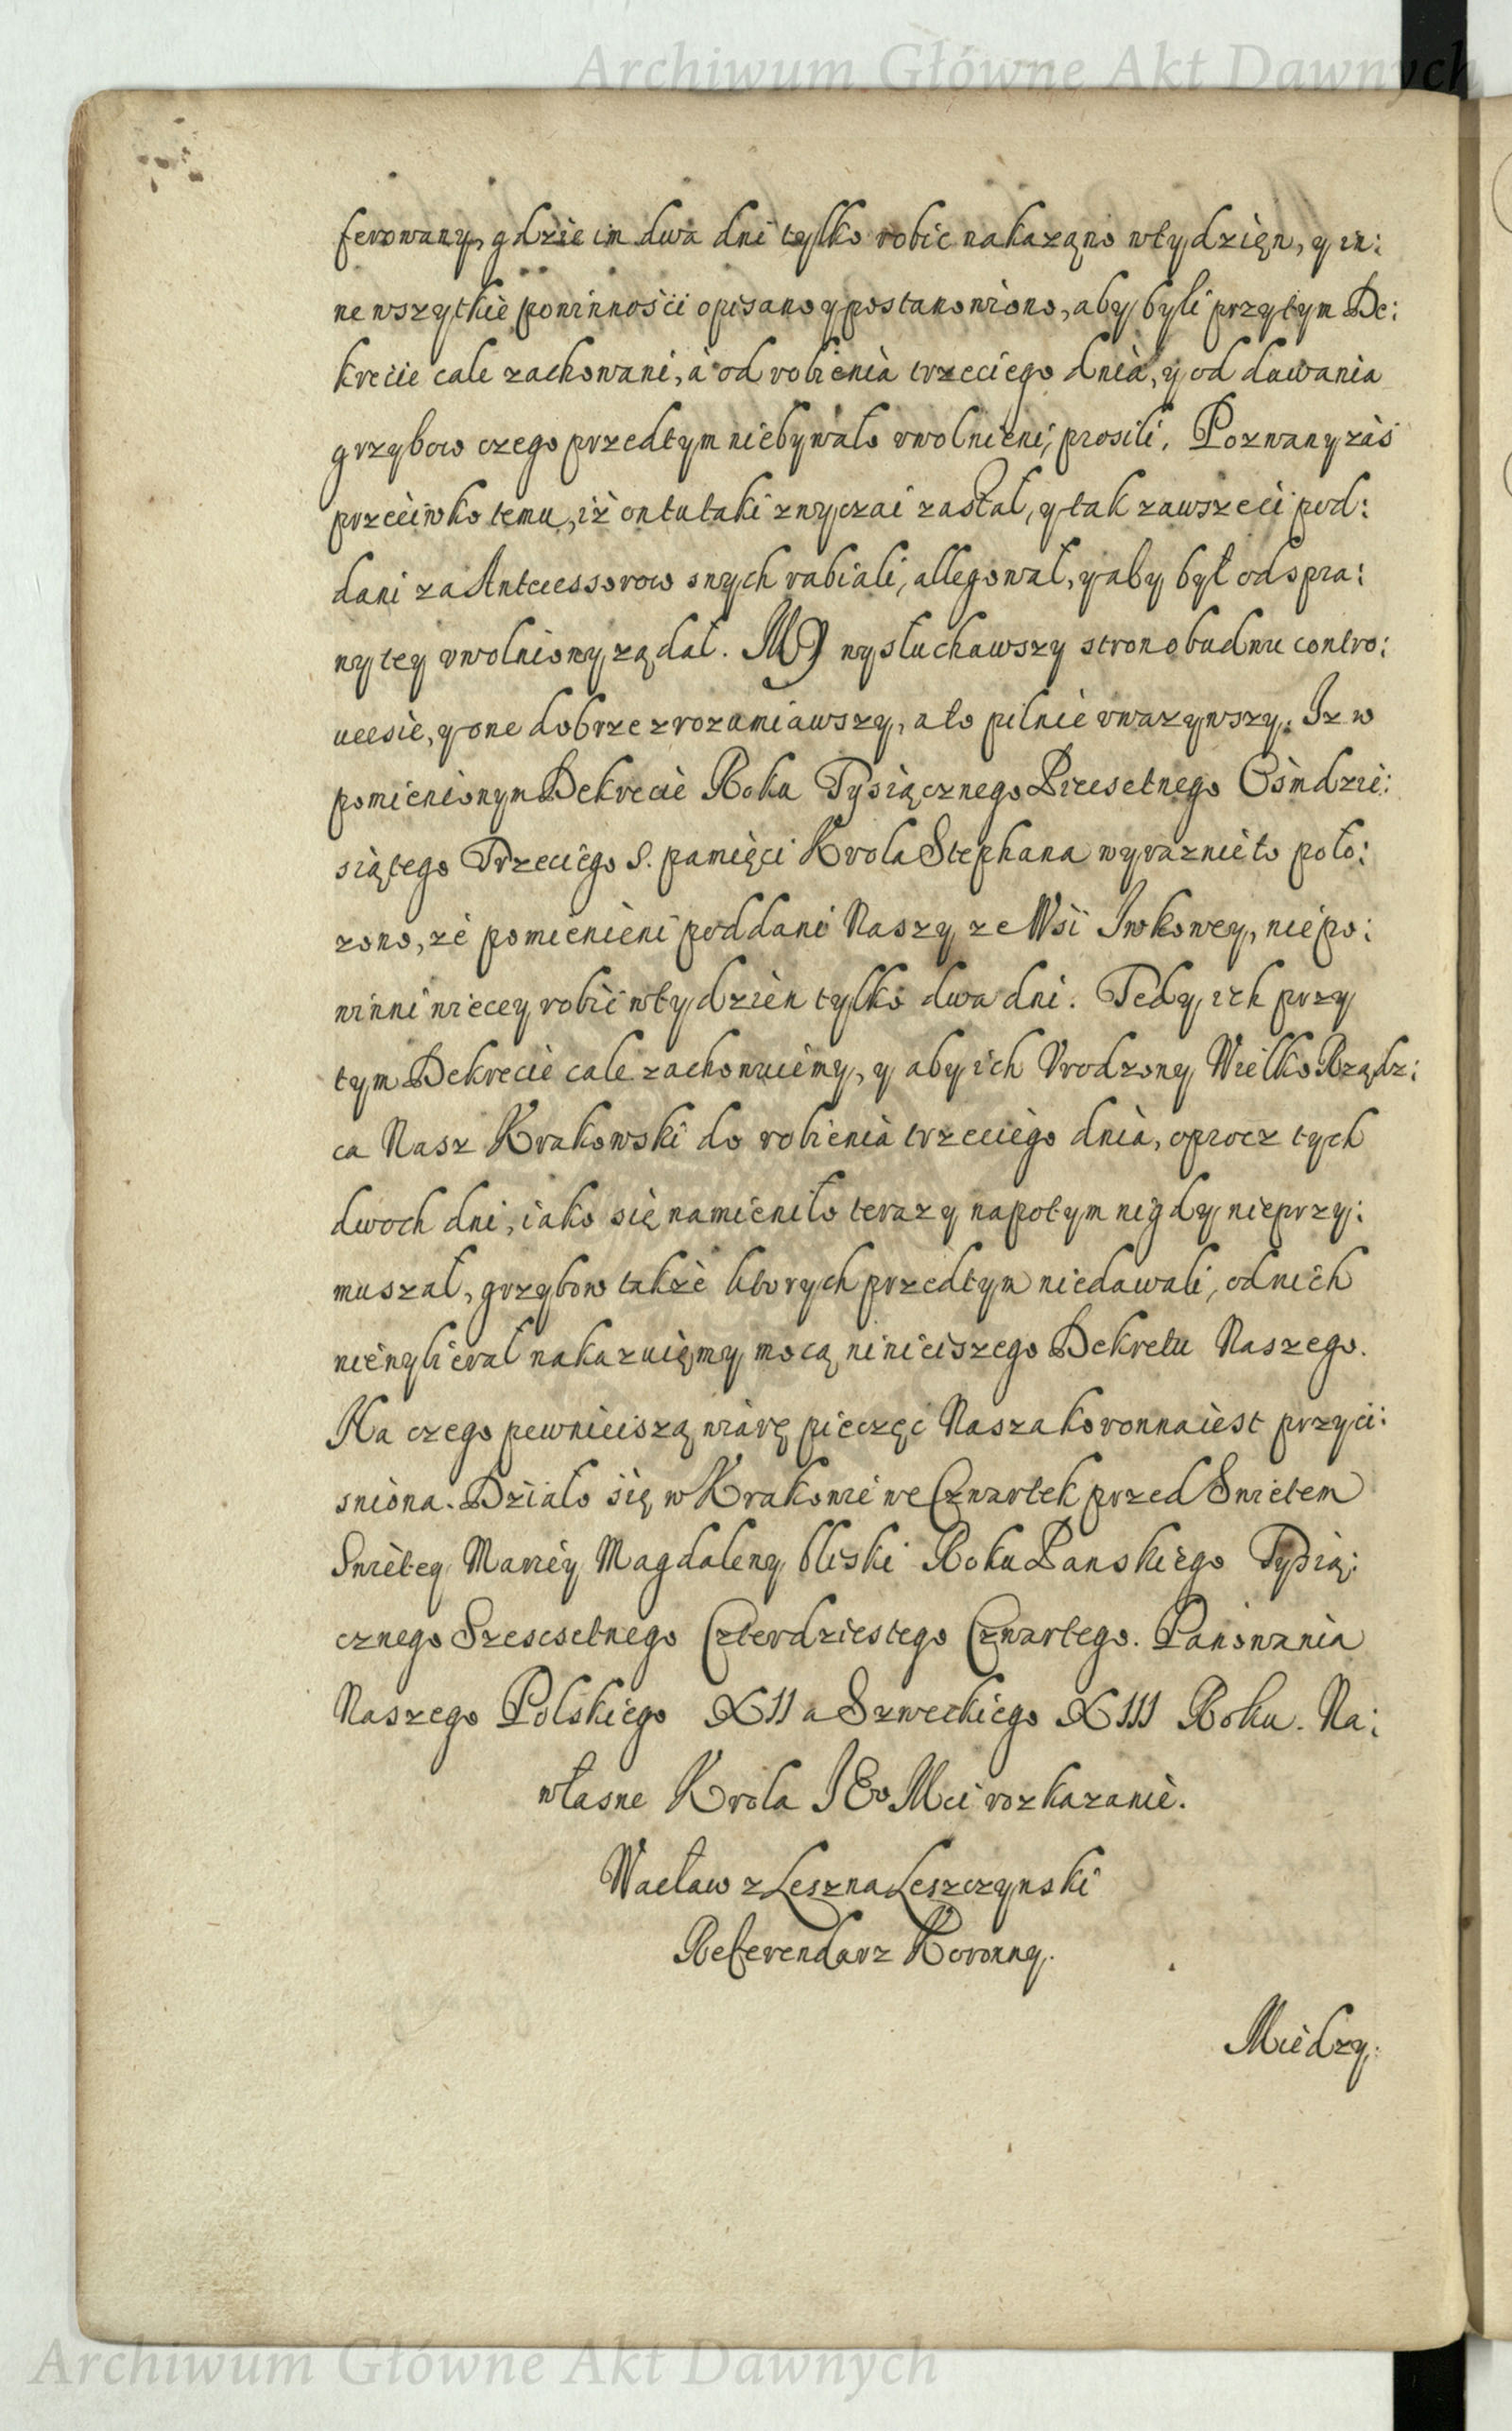 Archiwum Główne Akt Dawnych
ferowany, gdzie im dwa dni tylko robic nakaząno wtydzięn, y in:
ne wszytkie powinnosci opisano y postanowiono, aby byli przytym De:
krecie cale zachowani, à od robienia trzeciego dnia, y od dawania
grzybow czego przedtym niebywało vwolnieni, prosili. Pozwany zaś
przeciwko temu, iż on tu taki zwyczai zastał, y tak zawsze ci pod:
dani za Antecessorow onych rabiali, allegował, y aby był od spra:
wy tey vwolniony ządał. MY wysłuchawszy stron obudwu contro:
uersie, y one dobrze zrozumiawszy, a to pilnie vwazywszy. Iz w
pomienionym Dekrecie Roku Tysiącznego Piecsetnego Osmdzie:
siątego Trzeciego S. pamięci Krola Stephana wyraznie to poło:
zono, ze pomienieni poddani Naszy ze Wsi Iwkowey, niepo:
winni wiecey robic wtydzien tylko dwa dni. Tedy ich przy
tym Dekrecie cale zachowuiemy, y aby ich Vrodzony WielkoRządz:
ca Nasz Krakowski do robienia trzeciego dnia, oprocz tych
dwoch dni, iako się namieniło teraz y napotym nigdy nieprzy:
muszał, grzybow także ktorych przedtym niedawali, od nich
niewybierał nakazuięmy mocą ninieiszego Dekretu Naszego.
Na czego pewnieiszą wiarę pieczęc Nasza koronna iest przyci:
sniona. Działo się w Krakowie we Czwartek przed Swietem
Swiętey Mariey Magdaleny bliski Roku Panskiego Tysią:
cznego Szescsetnego Czterdziestego Czwartego. Panowania
Naszego Polskiego XII a Szweckiego XIII Roku. Na:
własne Krola IEo Mci rozkazanie.
Wacław z Leszna Leszczynski
Referendarz Koronny.
Miedzy.
Archiwum Główne Akt Dawnych